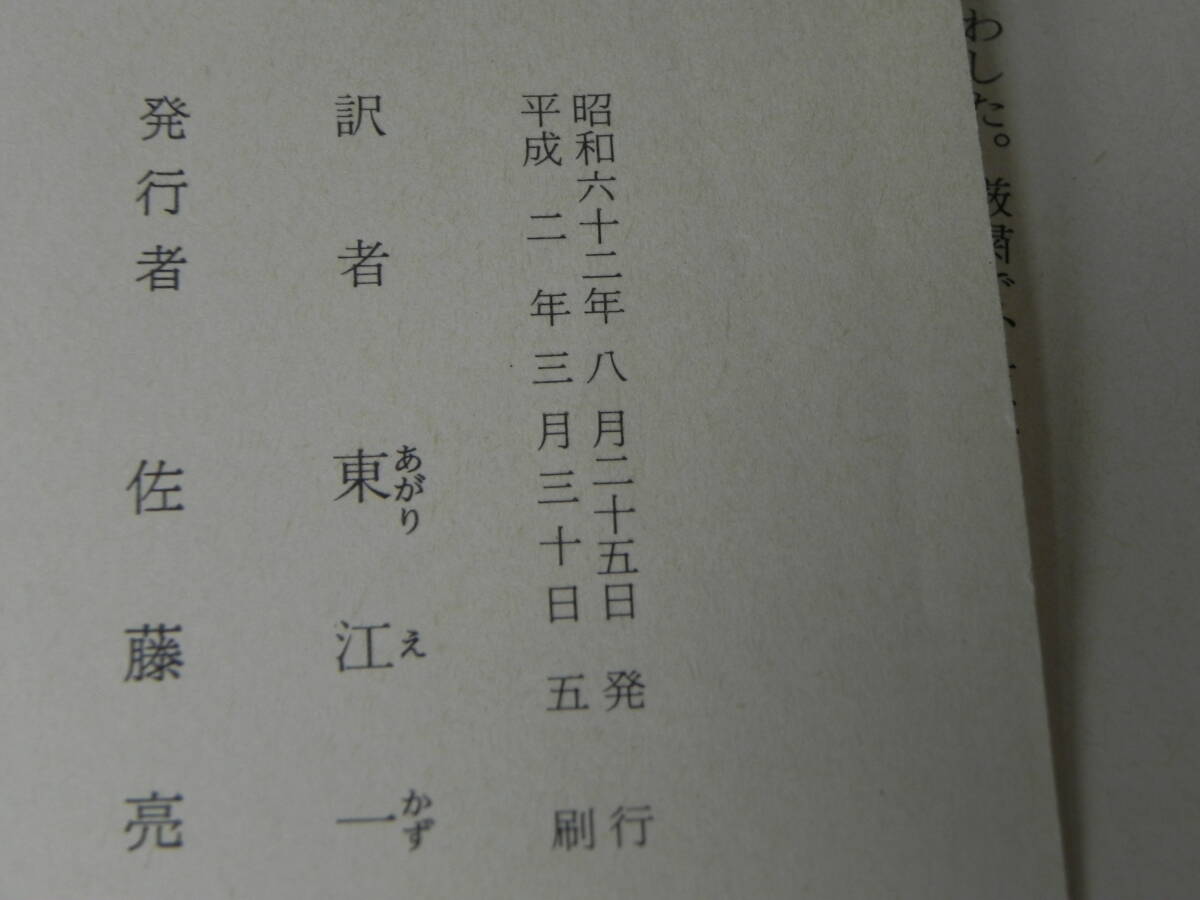 わした。厳粛で、
昭和六十二年八月二十五日発行
平成二年三月三十日五刷
訳者 東江一
あがりえかず
発行者 佐藤亮